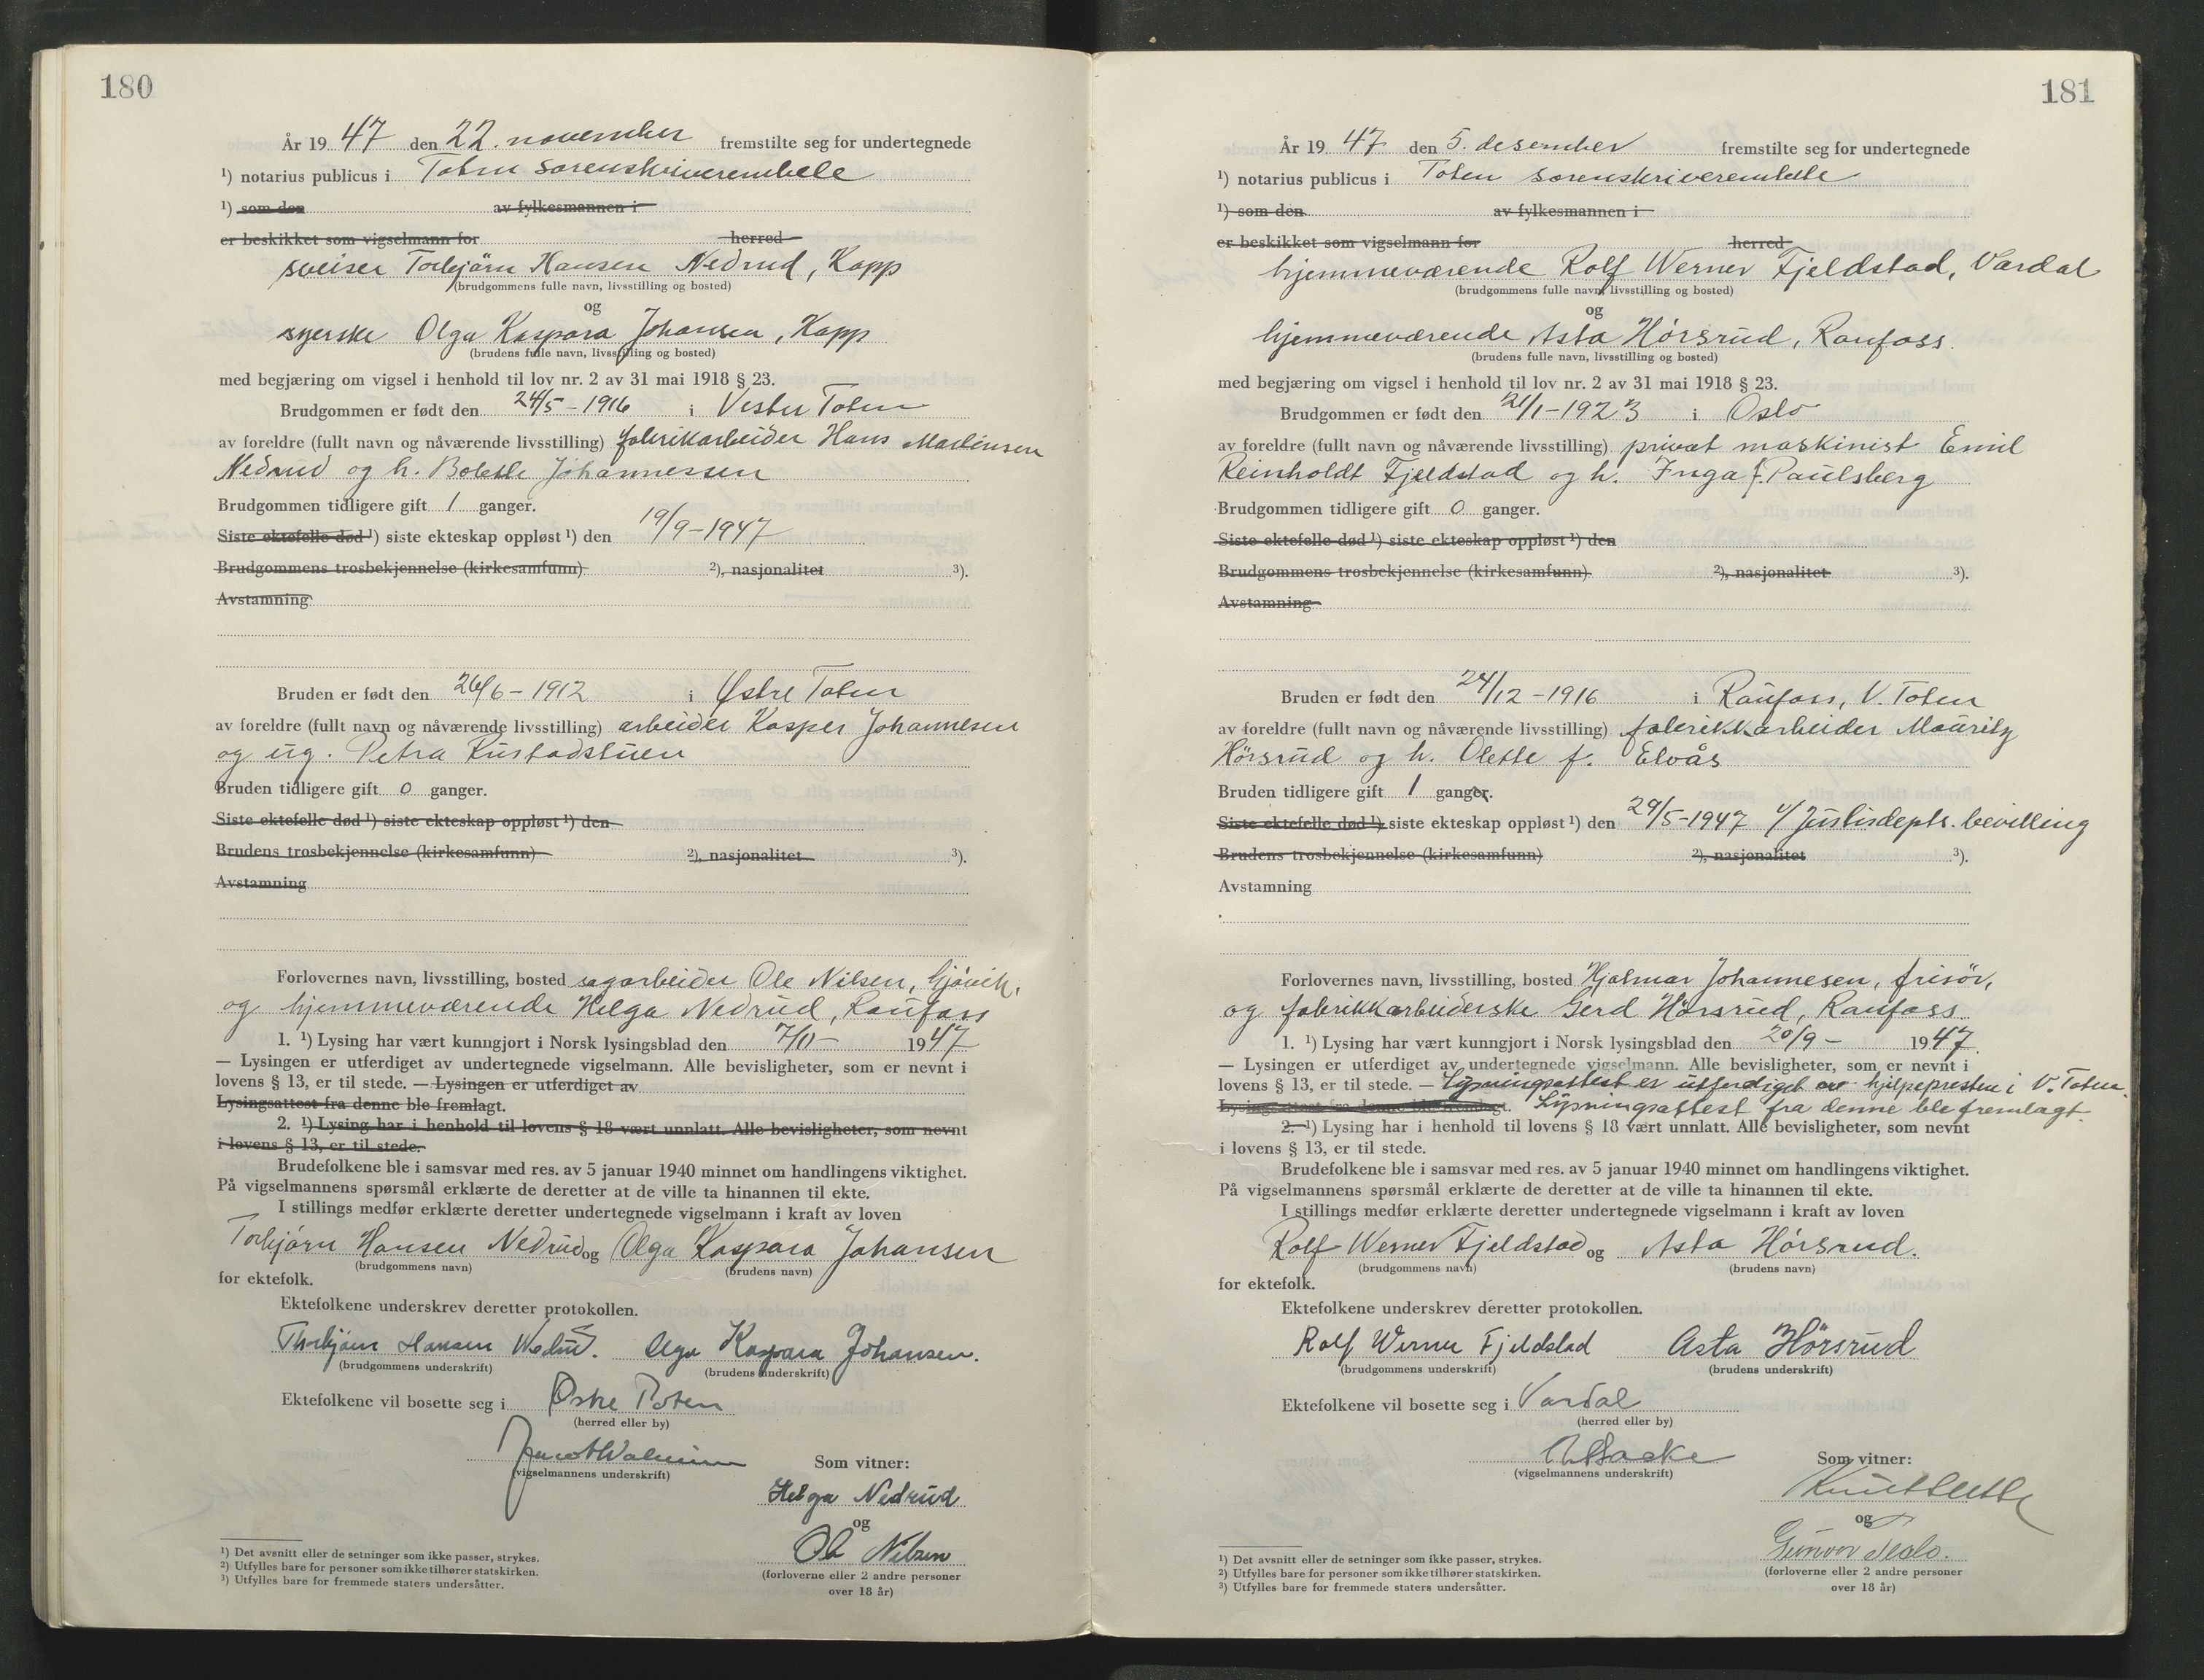 180
År 19 47 den 22. november fremstilte seg for undertegnede
¹) notarius publicus i Toten sorenskriverembete
¹) som den av fylkesmannen i
er beskikket som vigselmann for herred
sveiser Torbjörn Hansen Nedrud, Kapp
(brudgommens fulle navn, livsstilling og bosted)
og
syerske Olga Kaspara Johansen, Kapp
(brudens fulle navn, livsstilling og bosted)
med begjæring om vigsel i henhold til lov nr. 2 av 31 mai 1918 § 23.
Brudgommen er født den 24/5 - 1916 i Vestre Toten
av foreldre (fullt navn og nåværende livsstilling) fabrikkarbeider Hans Martinsen
Nedrud og h. Bolette Johannessen
Brudgommen tidligere gift 1 ganger.
Siste ektefelle død ¹) siste ekteskap oppløst ¹) den 19/9 - 1947
Brudgommens trosbekjennelse (kirkesamfunn) ²), nasjonalitet ³).
Avstamning
Bruden er født den 26/6 - 1912 i Østre Toten
av foreldre (fullt navn og nåværende livsstilling) arbeider Kasper Johannesen
og ug. Petra Rustadstuen
Bruden tidligere gift 0 ganger.
Siste ektefelle død ¹) siste ekteskap oppløst ¹) den
Brudens trosbekjennelse (kirkesamfunn) ²), nasjonalitet ³).
Avstamning
Forlovernes navn, livsstilling, bosted sagarbeider Ole Nilsen, Gjövik,
og hjemmeværende Helga Nedrud, Raufoss
1. ¹) Lysing har vært kunngjort i Norsk lysingsblad den 7/11 - 1947
— Lysingen er utferdiget av undertegnede vigselmann. Alle bevisligheter, som er nevnt i
lovens § 13, er til stede. — Lysingen er utferdiget av
Lysingsattest fra denne ble fremlagt.
2. ¹) Lysing har i henhold til lovens § 18 vært unnlatt. Alle bevisligheter, som nevnt
i lovens § 13, er til stede.
Brudefolkene ble i samsvar med res. av 5 januar 1940 minnet om handlingens viktighet.
På vigselmannens spørsmål erklærte de deretter at de ville ta hinannen til ekte.
I stillings medfør erklærte deretter undertegnede vigselmann i kraft av loven
Torbjörn Hansen Nedrud og Olga Kaspara Johansen
(brudgommens navn) (brudens navn)
for ektefolk.
Ektefolkene underskrev deretter protokollen.
Thorbjörn Hansen Nedrud. Olga Kaspara Johansen.
(brudgommens underskrift) (brudens underskrift)
Ektefolkene vil bosette seg i Østre Toten
(herred eller by)
(vigselmannens underskrift) Som vitner:
Helga Nedrud
og
Ole Nilsen
(forloverne eller 2 andre personer
over 18 år)
¹) Det avsnitt eller de setninger som ikke passer, strykes.
²) Utfylles bare for personer som ikke tilhører statskirken.
³) Utfylles bare for fremmede staters undersåtter.
181
År 19 47 den 5. desember fremstilte seg for undertegnede
¹) notarius publicus i Toten sorenskriverembete
¹) som den av fylkesmannen i
er beskikket som vigselmann for herred
hjemmeværende Rolf Werner Fjeldstad, Vardal
(brudgommens fulle navn, livsstilling og bosted)
og
hjemmeværende Asta Hörsrud, Raufoss.
(brudens fulle navn, livsstilling og bosted)
med begjæring om vigsel i henhold til lov nr. 2 av 31 mai 1918 § 23.
Brudgommen er født den 21/1 - 1923 i Oslo
av foreldre (fullt navn og nåværende livsstilling) privat maskinist Emil
Reinholdt Fjeldstad og h. Inga f. Paulsberg
Brudgommen tidligere gift 0 ganger.
Siste ektefelle død ¹) siste ekteskap oppløst ¹) den
Brudgommens trosbekjennelse (kirkesamfunn) ²), nasjonalitet ³).
Avstamning
Bruden er født den 24/12 - 1916 i Raufoss, V. Toten
av foreldre (fullt navn og nåværende livsstilling) fabrikkarbeider Mauritz
Hörsrud og h. Olette f. Elvås
Bruden tidligere gift 1 ganger.
Siste ektefelle død ¹) siste ekteskap oppløst ¹) den 29/5 - 1947 v/ Justisdepts. bevilling
Brudens trosbekjennelse (kirkesamfunn) ²), nasjonalitet ³).
Avstamning
Forlovernes navn, livsstilling, bosted Hjalmar Johannesen, frisör,
og fabrikkarbeiderske Gerd Hörsrud, Raufoss.
1. ¹) Lysing har vært kunngjort i Norsk lysingsblad den 20/9 - 1947.
— Lysingen er utferdiget av undertegnede vigselmann. Alle bevisligheter, som er nevnt i
lovens § 13, er til stede. — Lysningsattest er utferdiget av hjelpepresten i V. Toten.
Lysingsattest fra denne ble fremlagt. Lysningsattest fra denne ble fremlagt.
2. ¹) Lysing har i henhold til lovens § 18 vært unnlatt. Alle bevisligheter, som nevnt
i lovens § 13, er til stede.
Brudefolkene ble i samsvar med res. av 5 januar 1940 minnet om handlingens viktighet.
På vigselmannens spørsmål erklærte de deretter at de ville ta hinannen til ekte.
I stillings medfør erklærte deretter undertegnede vigselmann i kraft av loven
Rolf Werner Fjeldstad og Asta Hörsrud.
(brudgommens navn) (brudens navn)
for ektefolk.
Ektefolkene underskrev deretter protokollen.
Rolf Werner Fjeldstad Asta Hörsrud
(brudgommens underskrift) (brudens underskrift)
Ektefolkene vil bosette seg i Vardal
(herred eller by)
(vigselmannens underskrift) Som vitner:
og
Gunvor
(forloverne eller 2 andre personer
over 18 år)
¹) Det avsnitt eller de setninger som ikke passer, strykes.
²) Utfylles bare for personer som ikke tilhører statskirken.
³) Utfylles bare for fremmede staters undersåtter.